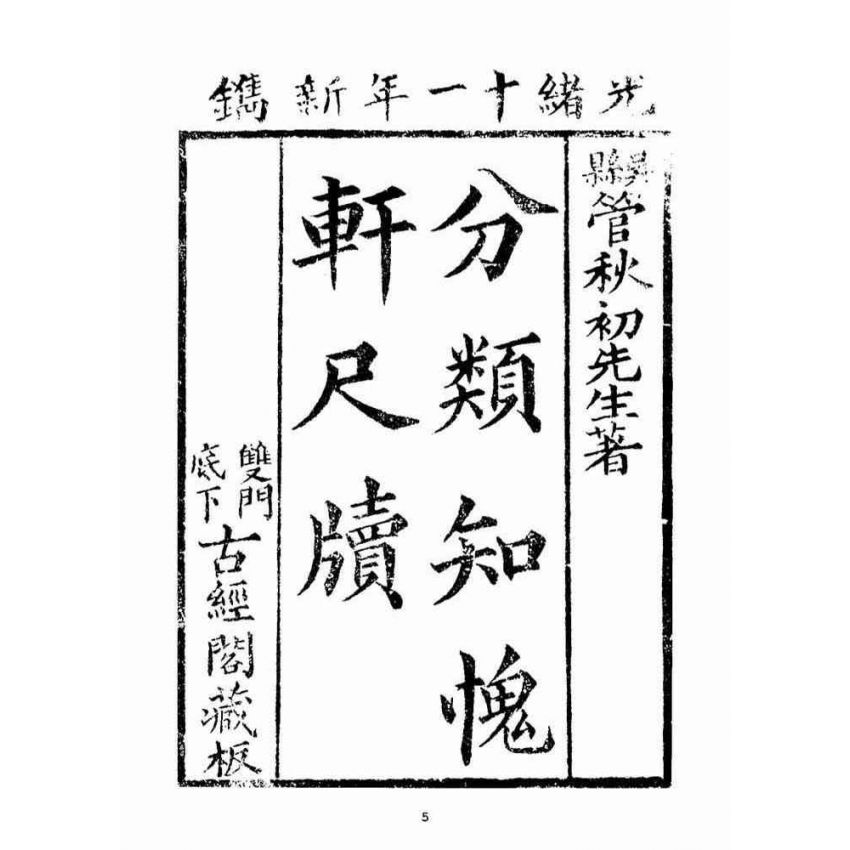 光緒十一年新鐫
吳縣管秋初先生著
分類知愧
軒尺牘
雙門底下古經閣藏板
5